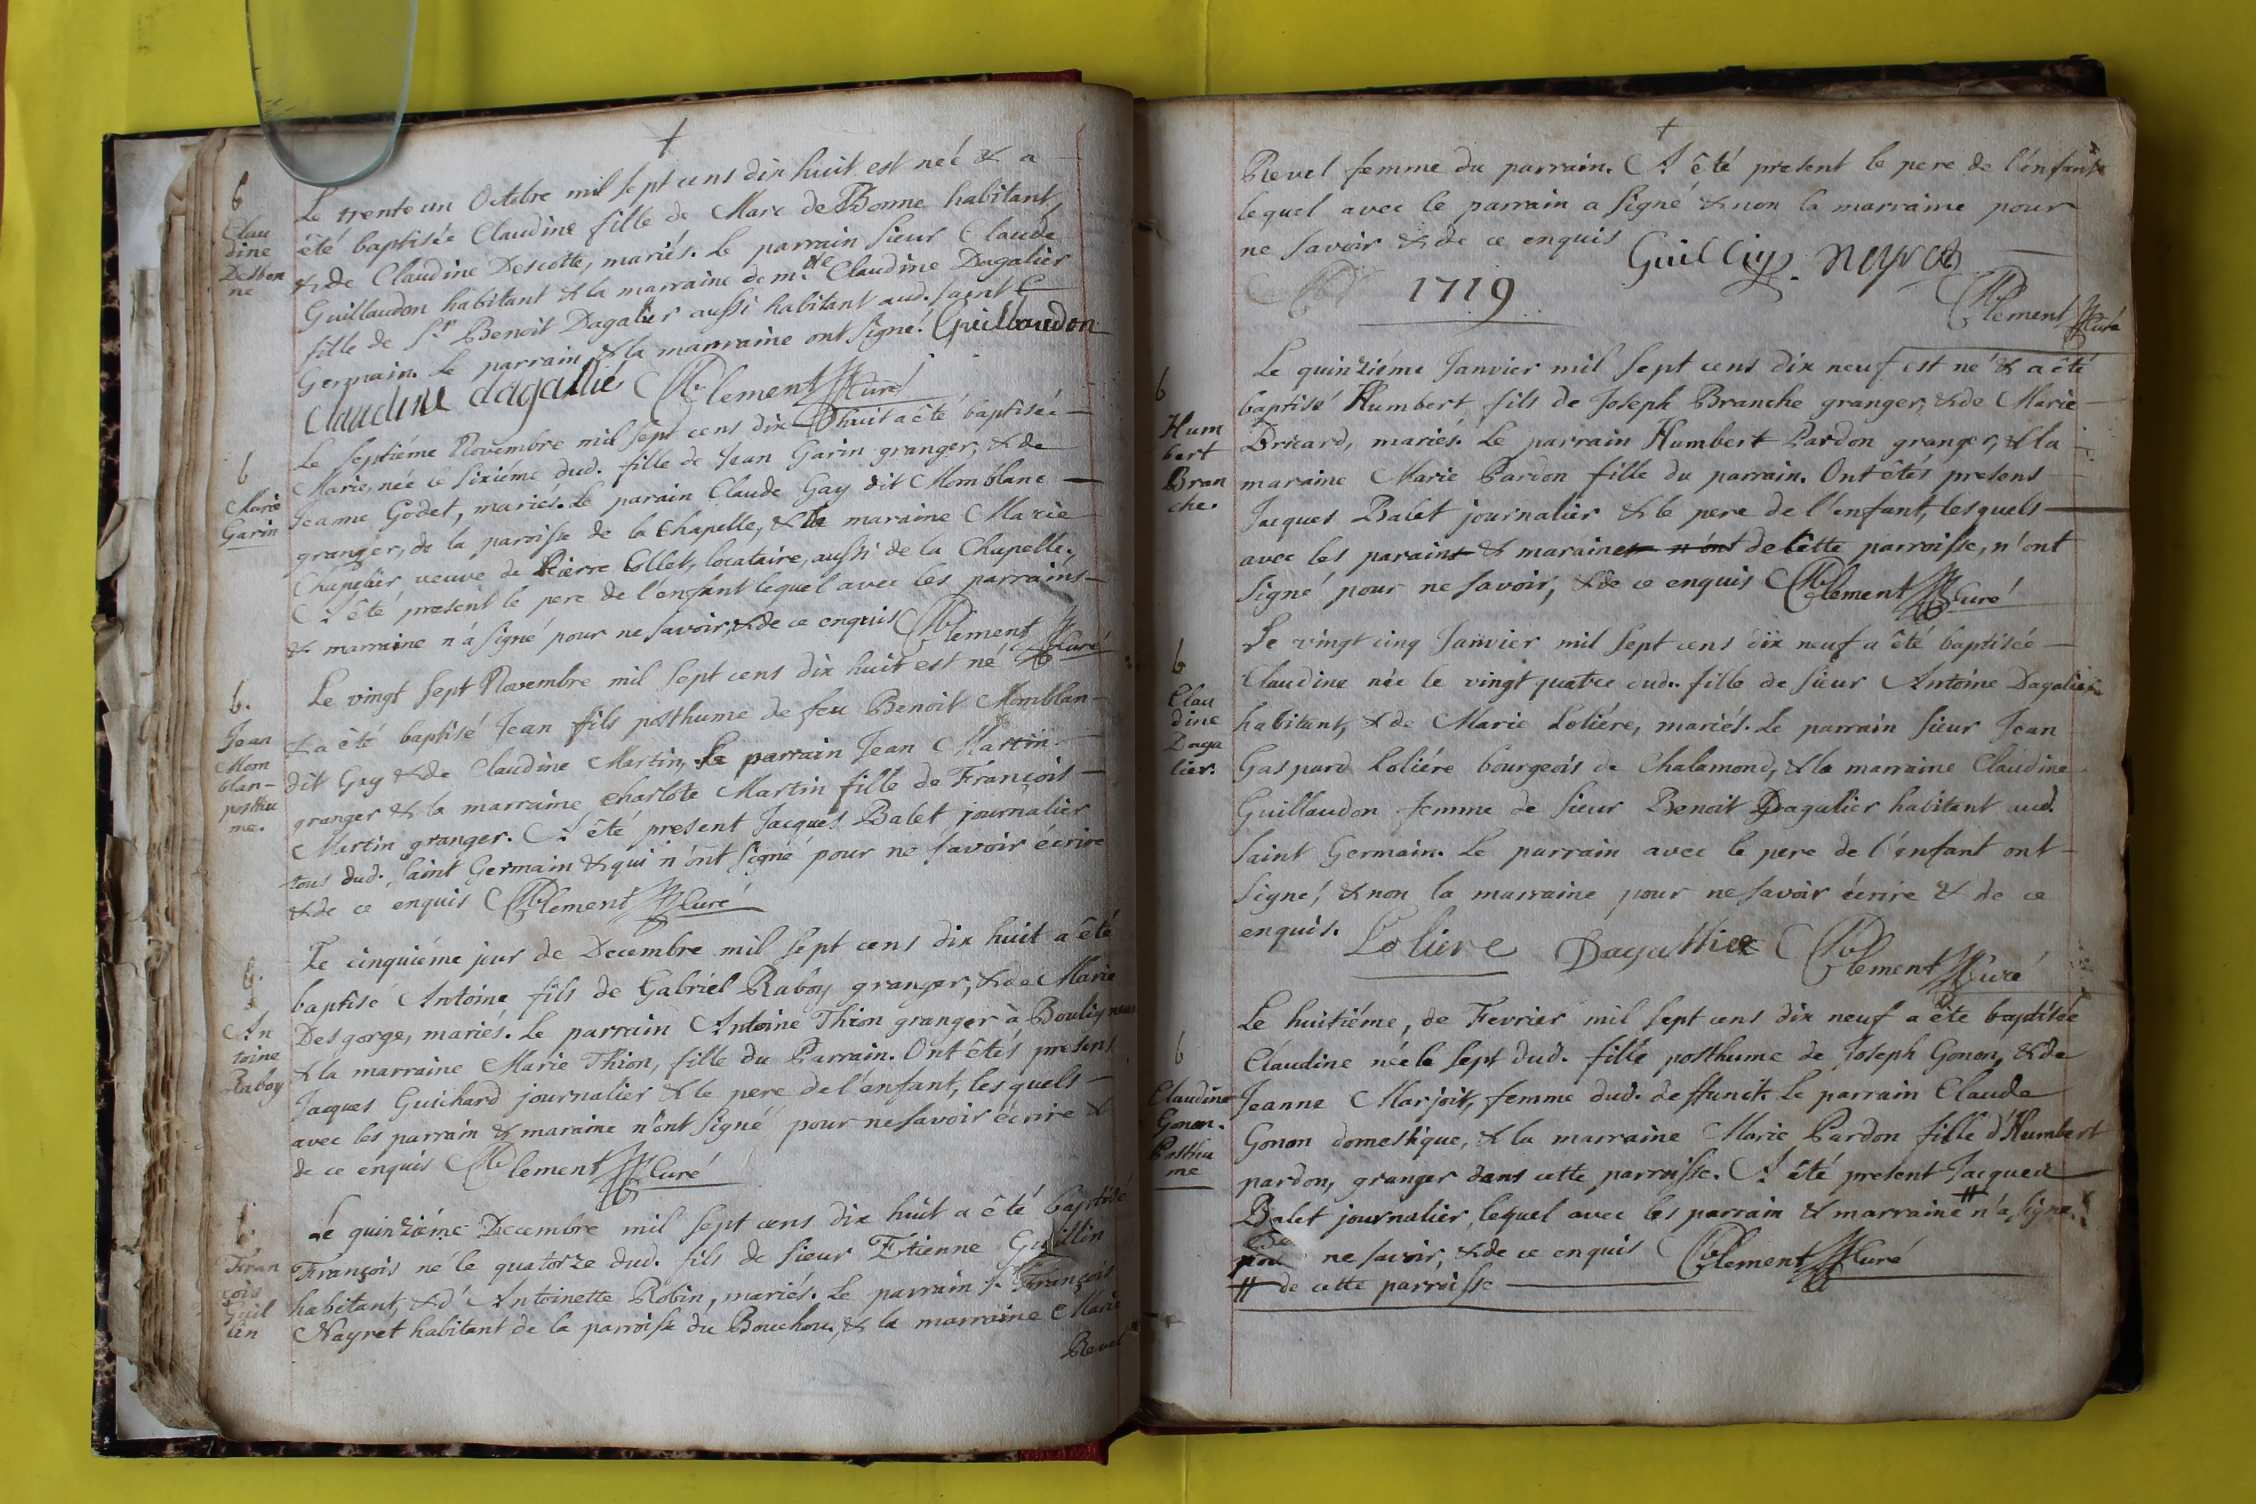 †
b
Clau
dine
Desbon
ne
Le trente un Octobre mil sept cens dix huit est neé & a
êté baptisée Claudine fille de Marc de Bonne habitant
& de Claudine Descotte, mariés. Le parrain sieur Claude
Guillaudon habitant & la marraine dem.lle Claudine Dagalier
fille de Sr Benoit Dagalier aussi habitant aud. saint
Germain. Le parrain & la marraine ont signé. Guillaudon
Claudine dagallié Clement Curé
b
Marie
Garin
Le septiéme Novembre mil sept cens dix huit a êté baptisée
Marie, née le sixiéme dud. fille de Jean Garin granger, & de
Jeanne Godet, mariés. Le parain Claude Gay dit Momblanc
granger, de la paroisse de la Chapelle, & la maraine Marie
Changier veuve de Pierre Collet, locataire, aussi de la Chapelle.
A êté present le pere de l'enfant lequel avec les parrains
& marraine n'a signé pour ne savoir, & de ce enquis Clement Curé
b.
Jean
Mom
blan-
posthu
me.
Le vingt sept Novembre mil sept cens dix huit est né
& a êté baptisé Jean fils posthume de feu Benoit Momblan
dit Gay & de Claudine Martin, Le parrain Jean Martin
granger & la marraine Charlote Martin fille de François
Martin granger. A êté present Jacques Balet journalier
tous dud. Saint Germain & qui n'ont signé pour ne savoir écrire
& de ce enquis Clement Curé
b.
An
toine
Raboy
Le cinquiéme jour de Decembre mil sept cens dix huit a êté
baptisé Antoine fils de Gabriel Raboy granger, & de Marie
Desgorge, mariés. Le parrain Antoine Thion granger à Bouligneux
& la marraine Marie Thion, fille du Parrain. Ont êtés presens
Jacques Guichard journalier & le pere de l'enfant, lesquels
avec les parrain & maraine n'ont signé pour ne savoir écrire &
de ce enquis Clement Curé
b.
Fran
çois
Guil
lin
Le quinziéme Decembre mil sept cens dix huit a êté baptisé
François né le quatorze dud. fils de sieur Etienne Guillin
habitant, & d'Antoinette Robin, mariés. Le parrain s. François
Nayret habitant de la parroisse du Bouchou, & la marraine Marie
Revel
†
Revel femme du parrain. A êté present le pere de l'enfant
lequel avec le parrain a signé & non la marraine pour
ne savoir & de ce enquis Guillin. Neyret
Clement Curé
1719
b
Hum
bert
Bran
che.
Le quinziéme Janvier mil sept cens dix neuf est né & a êté
baptisé Humbert fils de Joseph Branche granger, & de Marie
Bricard, mariés. Le parrain Humbert Pardon granger, & la
maraine Marie Pardon fille du parrain. Ont êtés presens
Jacques Balet journalier & le pere de l'enfant, lesquels
avec les parains & maraines n'ont de cette parroisse, n'ont
signé pour ne savoir, & de ce enquis Clement Curé
b
Clau
dine
Daga
lier.
Le vingt cinq Janvier mil sept cens dix neuf a êté baptisée
Claudine née le vingt quatre dud. fille de sieur Antoine Dagalier
habitant, & de Marie Loliére, mariés. Le parrain sieur Jean
Gaspard Loliére bourgeois de Chalamond, & la marraine Claudine
Guillaudon femme de sieur Benoit Dagalier habitant aud.
Saint Germain. Le parrain avec le pere de l'enfant ont
signé, & non la marraine pour ne savoir écrire & de ce
enquis. Loliere Dagallier Clement Curé
b
Claudine
Gonon.
Posthu
me
Le huitiéme, de Fevrier mil sept cens dix neuf a êté baptisée
Claudine née le sept dud. fille posthume de Joseph Gonon, & de
Jeanne Marjoit, femme dud. deffunct. Le parrain Claude
Gonon domestique, & la marraine Marie Pardon fille d'Humbert
pardon, granger dans cette parroisse. A êté present Jacques
Balet journalier, lequel avec les parrain & marraine # n'a signé
pour ne savoir, & de ce enquis Clement Curé
# de cette parroisse